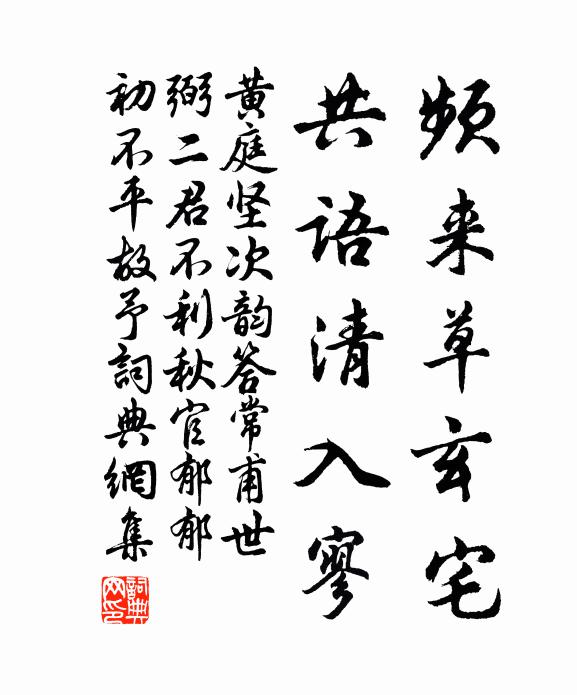 频来草玄宅
共语清入寥
黄庭坚次韵答常甫世
弼二君不利秋官郁郁
初不平故予詞典網集
詞典